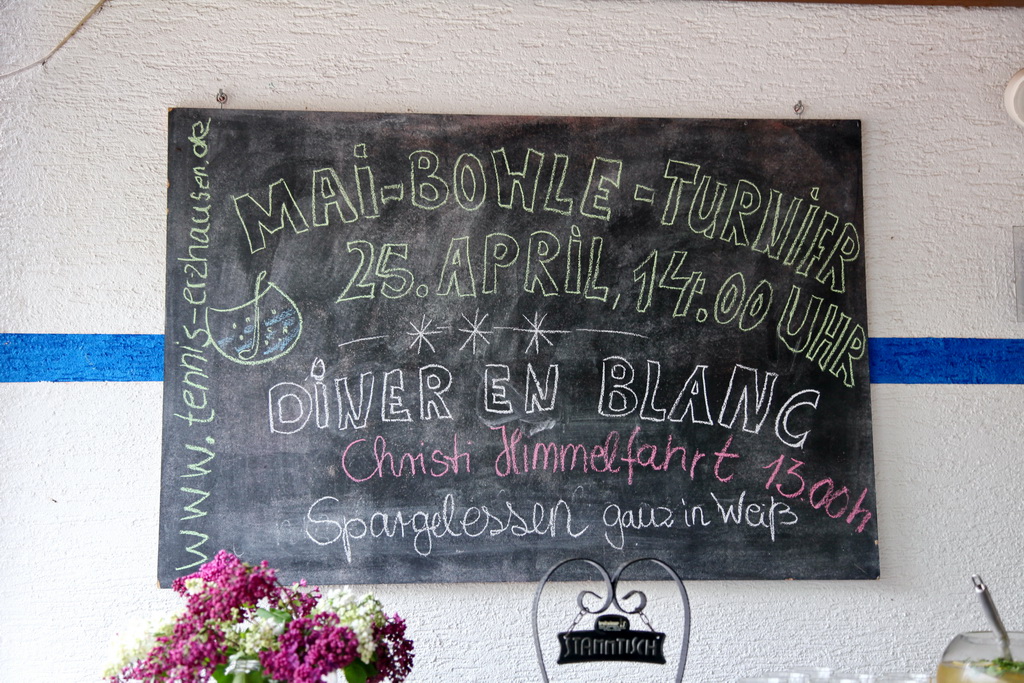 www.tennis-erzhausen.de
MAi-BOWLE-TURNiER
25. APRiL, 14.00 UHR
DiNER EN BLANC
Christi Himmelfahrt 13.00h
Spargelessen ganz in Weiß
STAMMTISCH